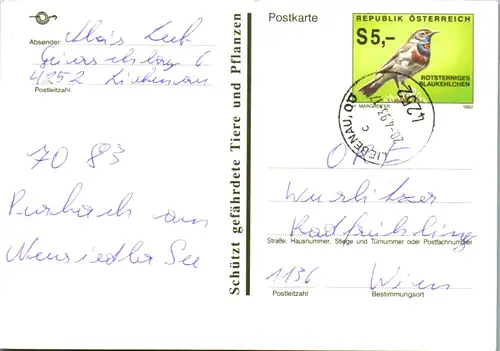 Postkarte
REPUBLIK ÖSTERREICH
S 5,-
ROTSTERNIGES
BLAUKEHLCHEN
MARGREITER
1992
4252 LIEBENAU, OÖ
20.-4.93
C
Absender: Alois
6
4252 Liebenau
Postleitzahl
7083
Purbach am
Neusiedler See
Schützt gefährdete Tiere und Pflanzen
ORF
Wurlitzer
Radfrühling
Straße, Hausnummer, Stiege und Türnummer oder Postfachnummer
1136 Wien
Postleitzahl Bestimmungsort